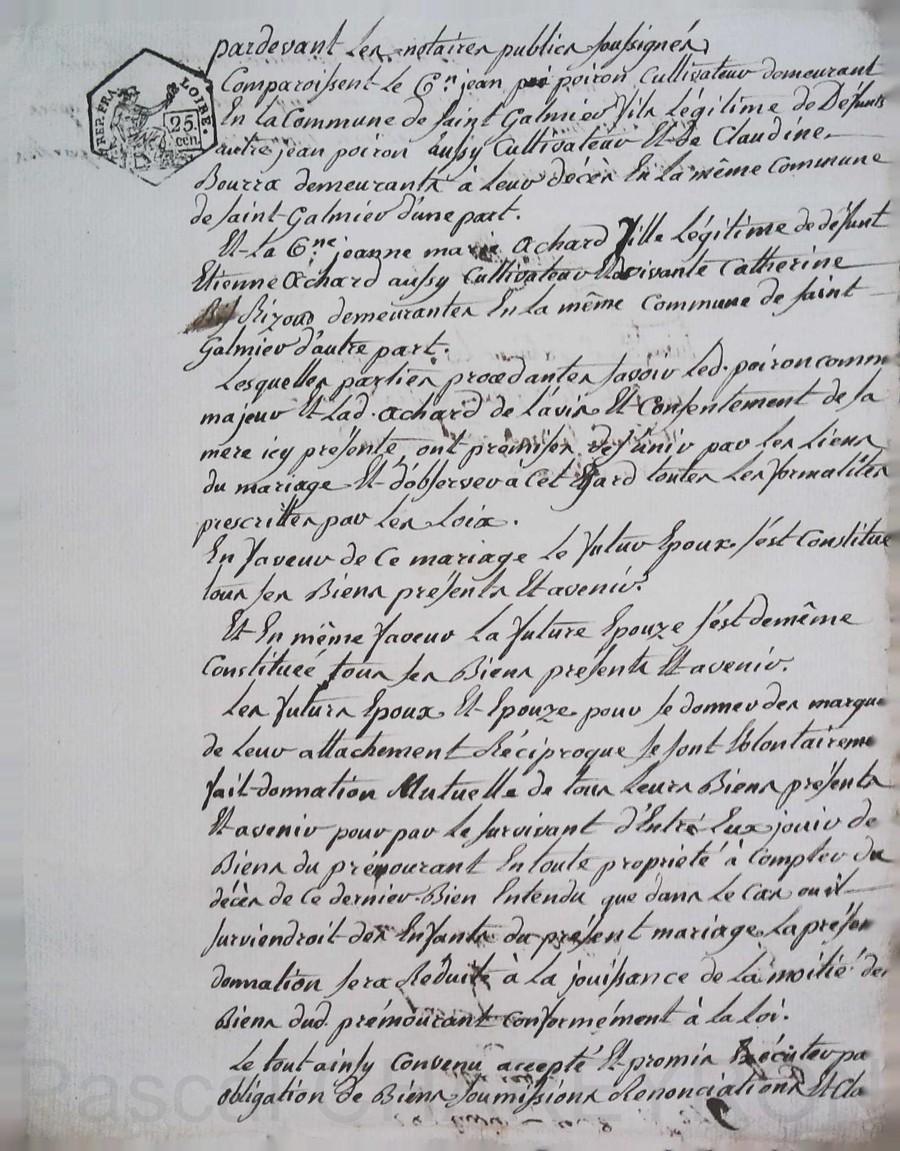 pardevant les notaires publics soussignés
Comparoissent le C.en jean poiron Cultivateur demeurant
En la Commune de saint Galmier fils Légitime de Défunts
autre jean poiron aussy Cultivateur Et de Claudine
Bourra demeurants à leur décès En la même Commune
de saint-Galmier d'une part.
Et la C.ne jeanne marie achard fille Légitime de défunt
Etienne achard aussy Cultivateur Et de vivante Catherine
Rizoud demeurantes En la même Commune de saint
Galmier d'autre part.
Lesquelles parties procedantes savoir led. poiron comme
majeur Et lad. achard de l'avis Et Consentement de sa
mere icy présente, ont promis de s'unir par les liens
du mariage Et d'observer a cet Egard toutes les formalites
prescrittes par les Loix.
En faveur de Ce mariage le futur Epoux s'est Constitue
tous ses Biens présents Et avenir.
Et En même faveur La future Epouze s'est demême
Constituée tous ses Biens presents Et avenir.
Les futurs Epoux Et Epouze pour se donner des marque
de leur attachement Réciproque se sont Volontaireme
fait donnation Mutuelle de tous leurs Biens présents
Et avenir pour par le survivant d'Entre Eux jouir de
Biens du prémourant En toute propriete à Compter du
décès de Ce dernier Bien Entendu que dans le Cas ou il
surviendroit des Enfants du présent mariage La présen
donnation sera Réduite à la jouissance de la moitié des
Biens dud. prémourant Conformément à la Loi.
Le tout ainsy Convenu accepté Et promis Exécuter pa
obligation de Biens soumissions Renonciations Et Cla
REP. FRA
LOIRE.
25.
cen.